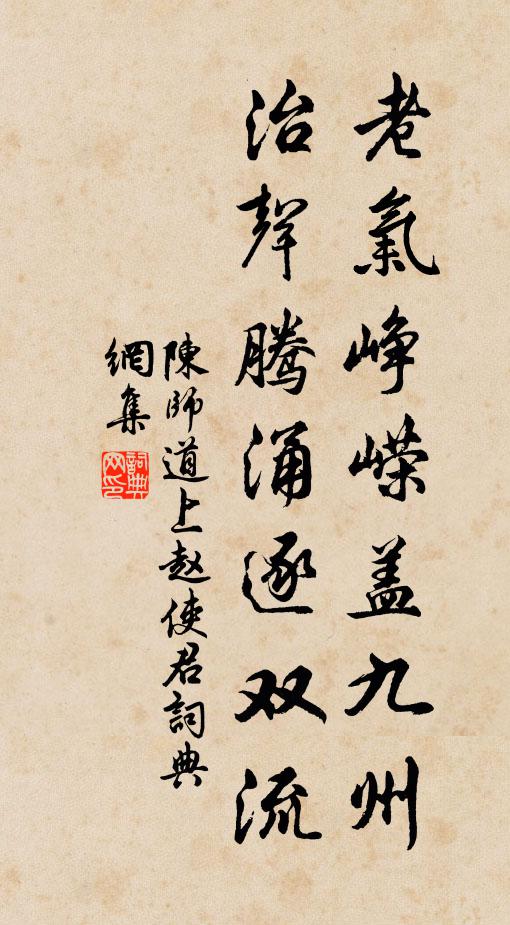 老氣峥嵘盖九州
治聲腾涌逐双流
陳師道上赵使君詞典
網集
詞典
网印